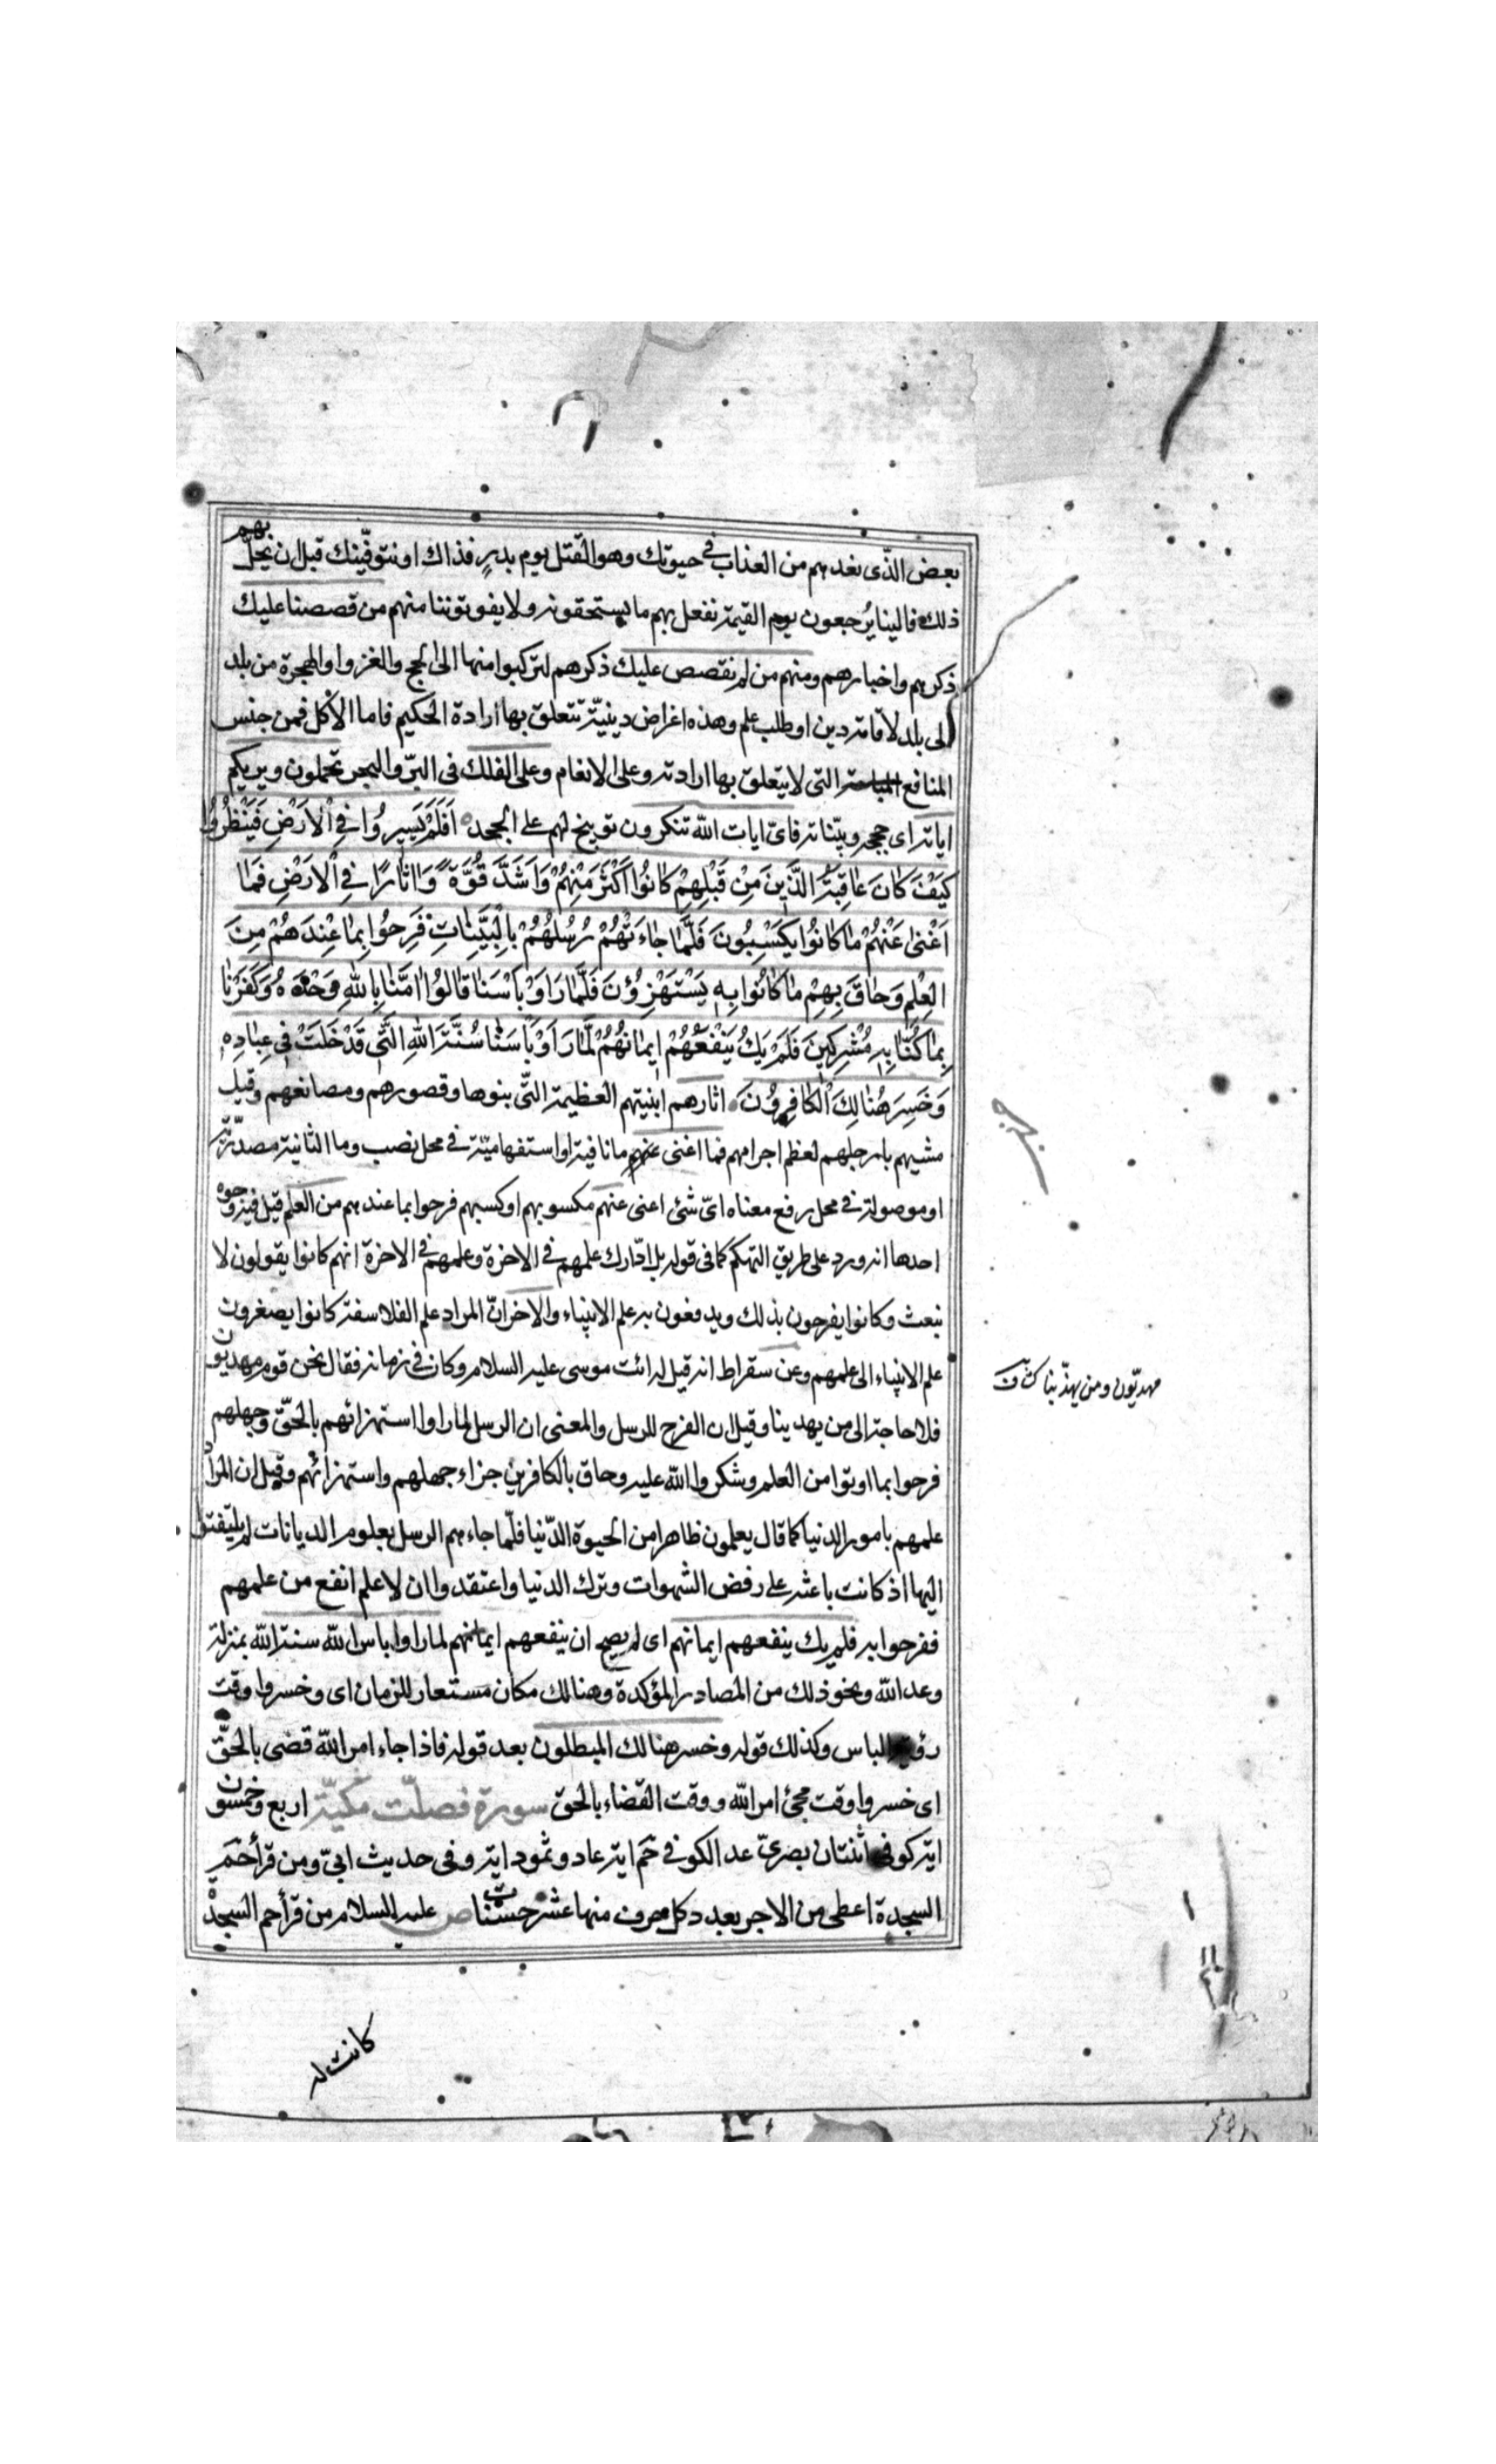 بعض الذّى نعدهم من العذاب فى حيوتك وهو القتل يوم بدرٍ فذاك او نتوفّينك قبل ان نحلّ بهم
ذلك فالينا يُرجعون يوم القيمة نفعل بهم ما يستحقونه ولا يفوتوننا منهم من قصصنا عليك
ذكرهم واخبارهم ومنهم من لم نقصص عليك ذكرهم لتركبوا منها الى الحج والغزو او الهجرة من بلد
الى بلد لاقامة دين او طلب علم وهذه اغراض دينيّة تتعلق بها ارادة الحكيم فاما الاكل فمن جنس
المنافع المباحة التى لا يتعلق بها ارادته وعلى الانعام وعلى الفلك فى البرّ والبحر تحملون ويريكم
اياته اى حججه وبيّناته فاىّ ايات الله تنكرون توبيخ لهم على الجحد اَفَلَمْ يَسيرُوا فِى الْاَرَضِ فَيَنْظُرُوا
كَيْفَ كانَ عاقِبَةُ الَّذينَ مِنْ قَبْلِهِمْ كانُوا اَكْثَرَ مِنْهُمْ وَاَشَدَّ قُوَّةً وَاثارًا فِى الْاَرَضِ فَما
اَغْنى عَنْهُمْ ما كانُوا يَكْسِبُونَ فَلَمَّا جاءَتْهُمْ رُسُلُهُمْ بِالْبَيِّناتِ فَرِحُوا بِما عِنْدَهُمْ مِنَ
الْعِلْمِ وَحاقَ بِهِمْ ما كانُوا بِهِ يَسْتَهْزِؤُنَ فَلَمَّا رَاَوْ بَاْسَنا قالُوا امَنَّا بِاللهِ وَحْدَهُ وَكَفَرْنا
بِما كُنَّا بِهِ مُشْرِكينَ فَلَمْ يَكُ يَنْفَعُهُمْ ايمانُهُمْ لَمَّا رَاَوْ بَاْسَنا سُنَّتَ اللهِ الَّتى قَدْ خَلَتْ فى عِبادِهِ
وَخَسِرَ هُنالِكَ الْكافِرُونَ اثارهم ابنيتهم العظيمة التّى بنوها وقصورهم ومصانعهم وقيل
مشيهم بارجلهم لعظم اجرامهم فما اغنى عنهم ما نافية او استفهاميّة فى محل نصب وما الثانية مصدّريّة
او موصولة فى محل رفع معناه اىّ شئ اغنى عنهم مكسوبهم او كسبهم فرحوا بما عندهم من العلم قيل فيه وجوه
احدها انه ورد على طريق التهكم كما فى قوله بل ادّارك علمهم فى الاخرة وعلمهم فى الاخرة انهم كانوا يقولون لا
نبعث وكانوا يفرحون بذلك ويدفعون به علم الانبياء والاخر انّ المراد علم الفلاسفة كانوا يصغرون
علم الانبياء الى علمهم وعن سقراط انه قيل له ائت موسى عليه السلام وكان فى زمانه فقال نحن قوم مهديّون
فلا حاجة الى من يهدينا وقيل ان الفرح للرسل والمعنى ان الرسل لما راوا استهزائهم بالحقّ وجهلهم
فرحوا بما اوتوا من العلم وشكروا الله عليه وحاق بالكافرين جزاء جهلهم واستهزائهم وقيل ان المراد
علمهم بامور الدنيا كما قال يعلمون ظاهرا من الحيوة الدّنيا فلّما جاءهم الرسل بعلوم الديانات لم يلتفتوا
اليها اذ كانت باعثة على رفض الشهوات وترك الدنيا واعتقدوا ان لا علم انفع من علمهم
ففرحوا به فلم يك ينفعهم ايمانهم اى لم يصح ان ينفعهم ايمانهم لما راوا باس الله سنة الله بمنزلة
وعد الله ونحو ذلك من المصادر المؤكدة وهنالك مكان مستعار للزمان اى وخسروا وقت
رؤية الباس وكذلك قوله وخسر هنالك المبطلون بعد قوله فاذا جاء امر الله قضى بالحقّ
اى خسروا وقت مجئ امر الله ووقت القضاء بالحق سورة فصلت مكيّة اربع وخمسون
اية كوفى اثنتان بصرىّ عد الكوفى حٓم اية عاد وثمود اية وفى حديث ابىّ ومن قرأ حٓم
السجدة اعطى من الاجر بعدد كل حرف منها عشر حسنات ص عليه السلام من قرأ حم السجدة
مهديّون ومن يهذّبنا
كانت له